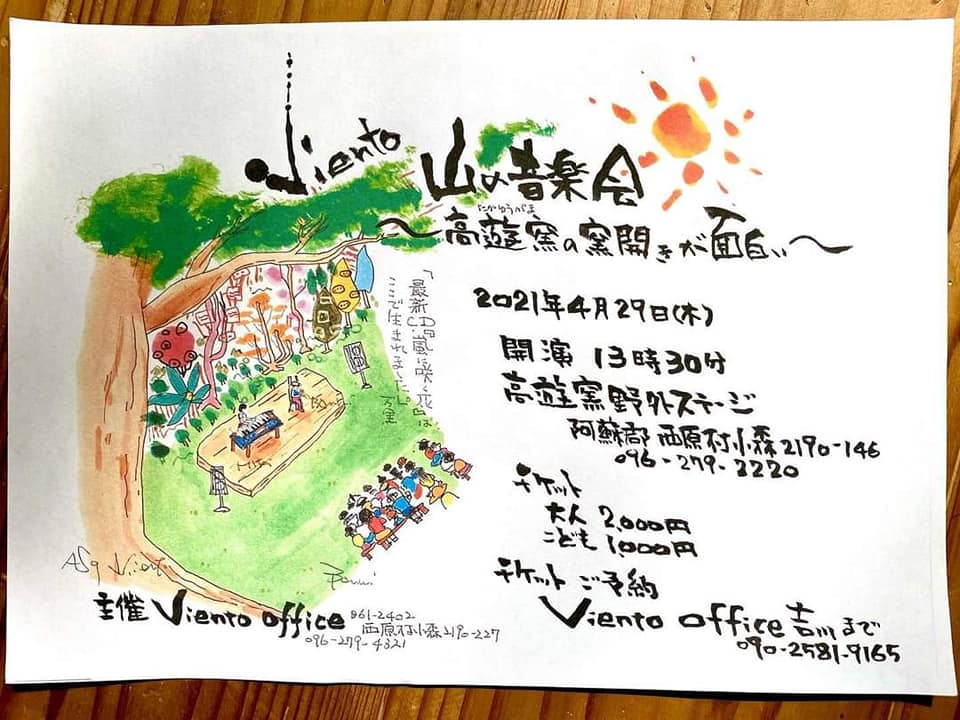 Viento 山の音楽会
たかゆうがま
～高遊窯の窯開きが面白い～
2021年4月29日(木)
開演 13時30分
高遊窯野外ステージ
阿蘇郡西原村小森2190-146
096-279-2220
チケット
大人 2,000円
こども 1,000円
チケットご予約
Viento office 吉川まで
090-2581-9165
「最新CD『嵐に咲く花』は
ここで生まれました」
万里
主催 Viento office
861-2402
西原村小森2190-227
096-279-4321